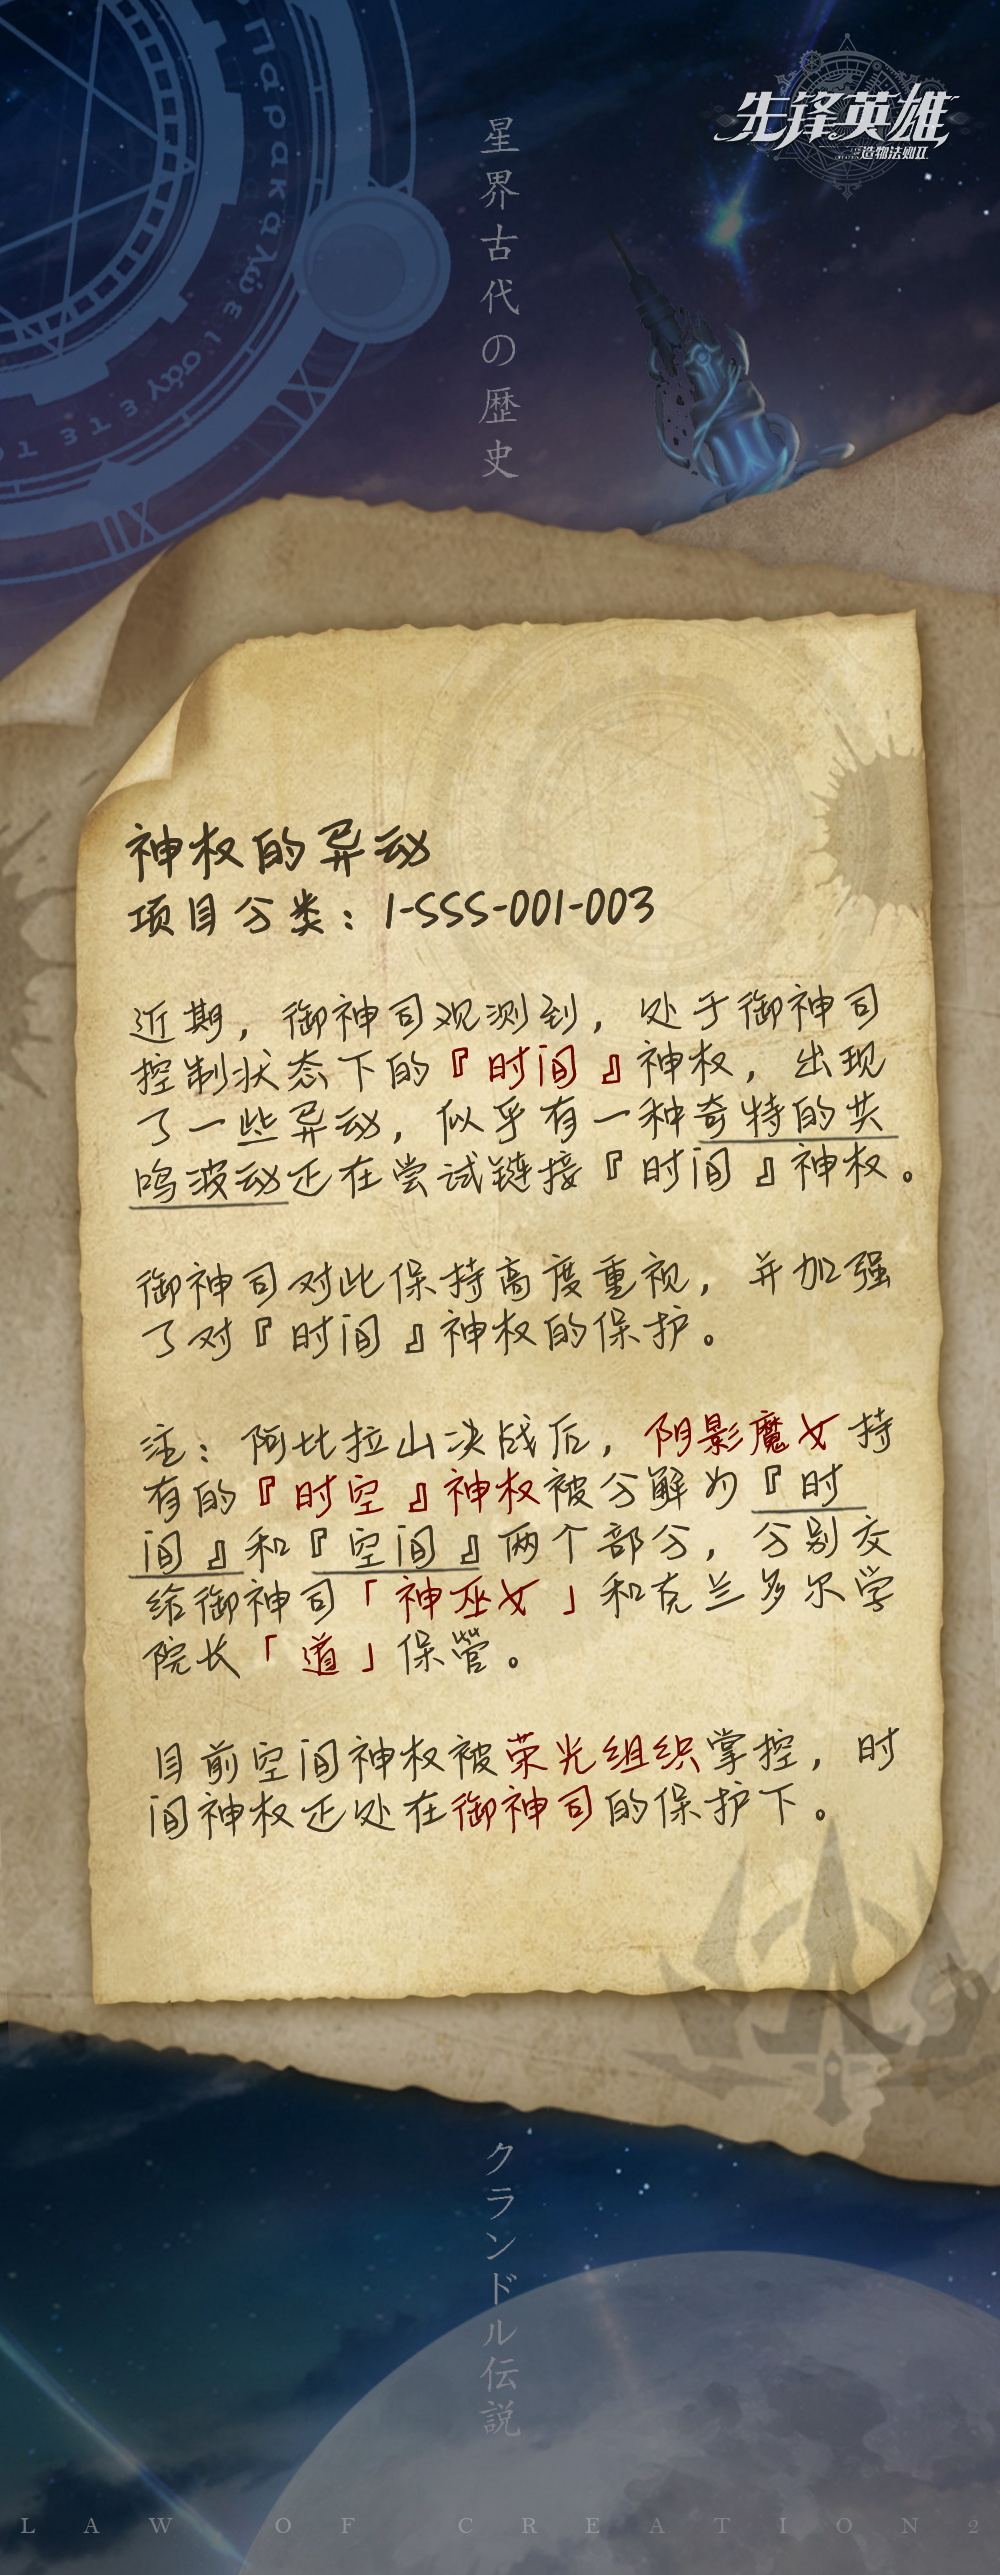 先锋英雄
造物法则II
星界古代の歴史
神权的异动
项目分类：1-SSS-001-003
近期，御神司观测到，处于御神司
控制状态下的『时间』神权，出现
了一些异动，似乎有一种奇特的共
鸣波动正在尝试链接『时间』神权。
御神司对此保持高度重视，并加强
了对『时间』神权的保护。
注：阿比拉山决战后，阴影魔女持
有的『时空』神权被分解为『时
间』和『空间』两个部分，分别交
给御神司「神巫女」和克兰多尔学
院长「道」保管。
目前空间神权被荣光组织掌控，时
间神权正处在御神司的保护下。
クランドル伝説
LAW OF CREATION2